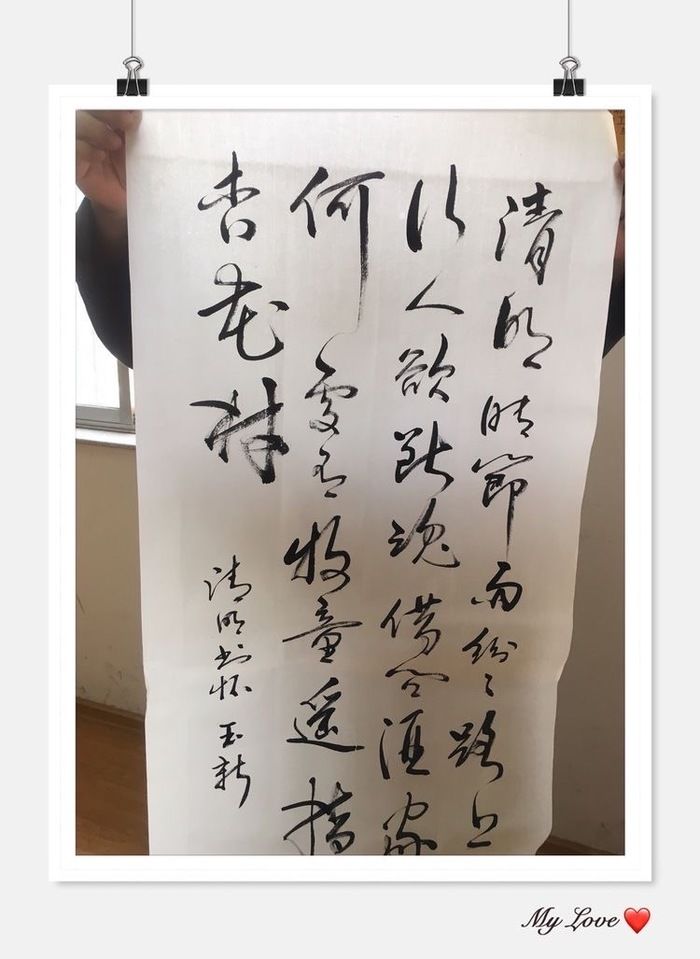 清明時節雨紛々路上
行人欲断魂借问酒家
何處有牧童遥指
杏花村
清明书怀 玉新
My Love ❤️